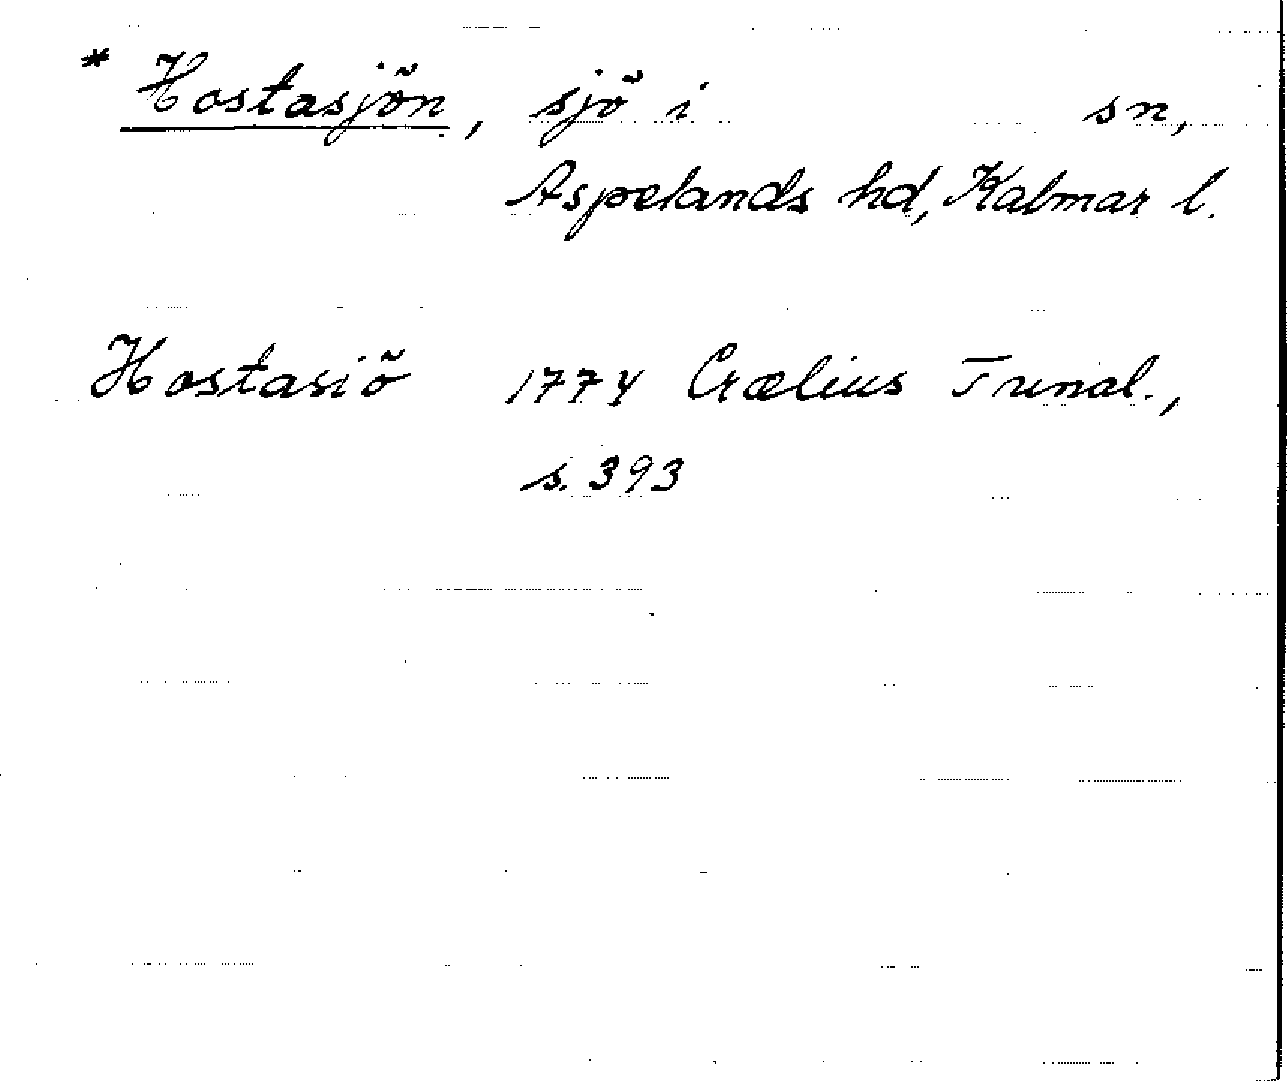 * Hostasjön, sjö i sn,
Aspelands hd, Kalmar l.
Hostasiö 1774 Crælius Tunal.,
s. 393